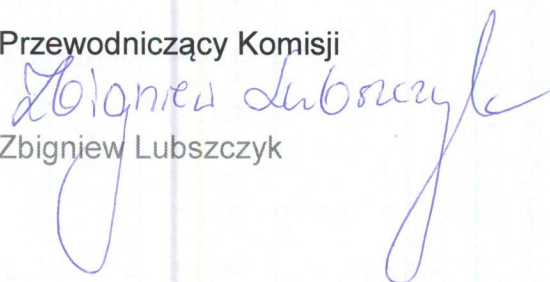 Przewodniczący Komisji
Zbigniew Lubszczyk
Zbigniew Lubszczyk